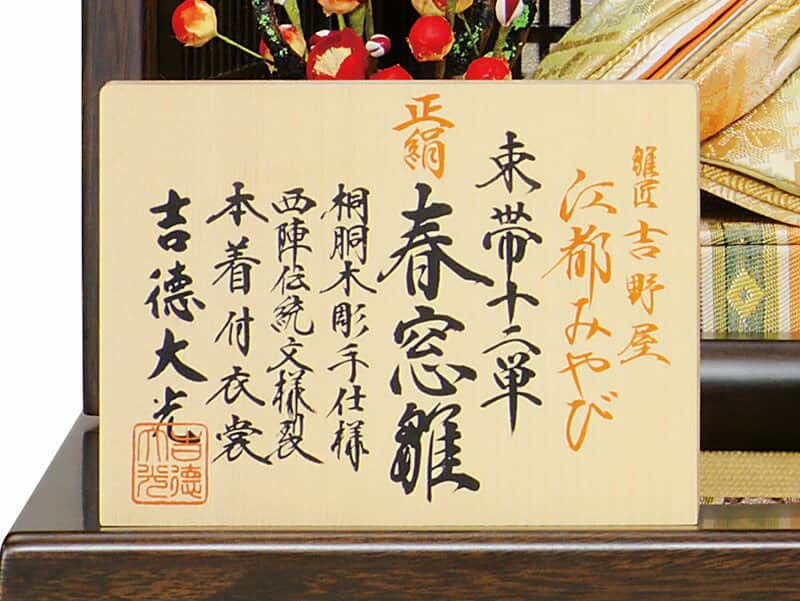 雛匠 吉野屋
江都みやび
束帯十二単
正絹 春窓雛
桐胴木彫手仕様
西陣伝統文様裂
本着付衣裳
吉德大光
吉德大光